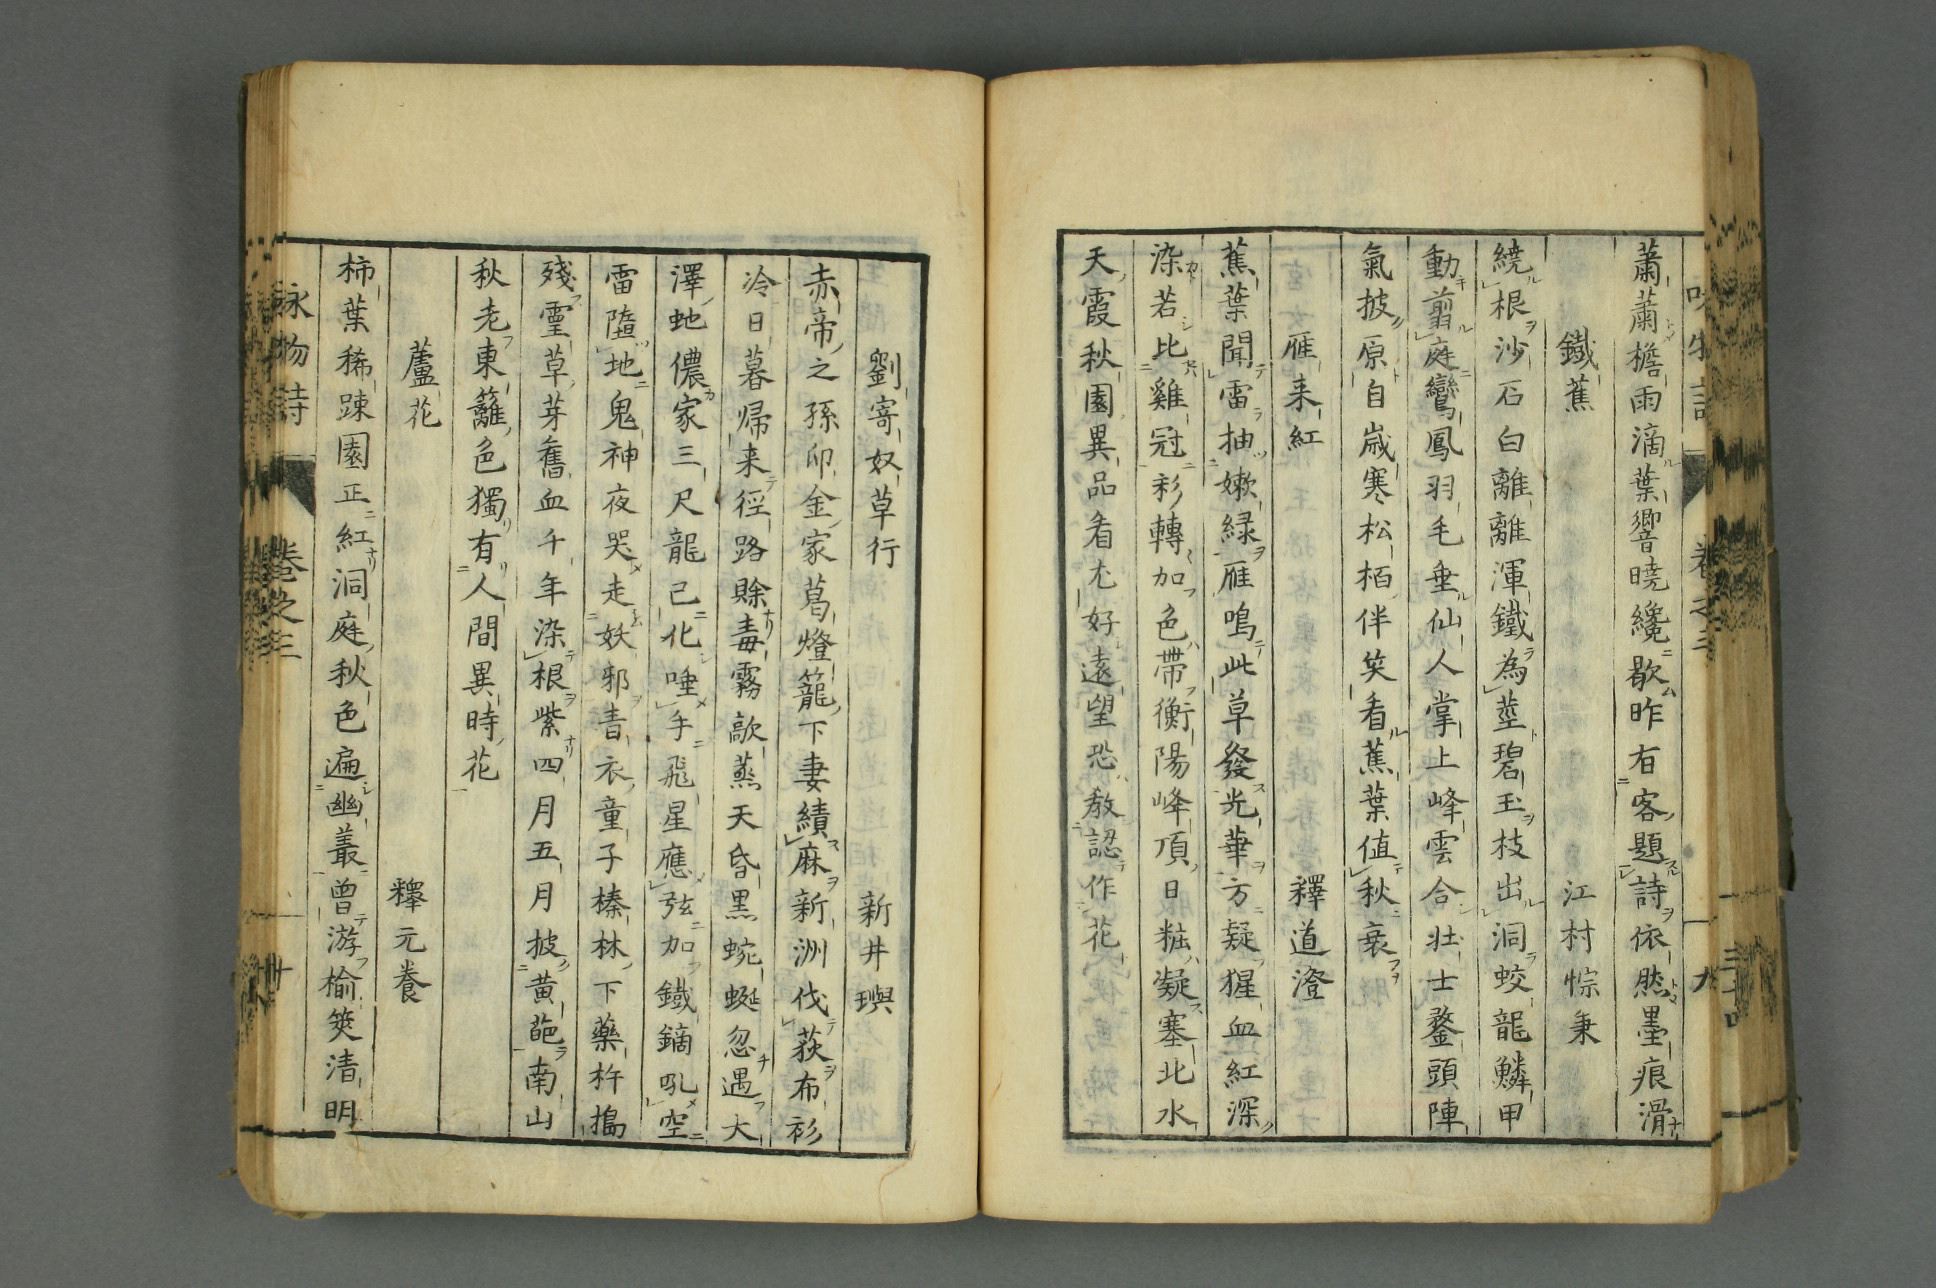 蕭蕭檐雨滴葉響曉纔歇昨有客題詩依然墨痕滑
鐵蕉　江村悰秉
繞根沙石白離離渾鐵為莖碧玉枝出洞蛟龍鱗甲
動翦庭鸞鳳羽毛垂仙人掌上峰雲合壯士鍪頭陣
氣披原自歲寒松栢伴笑看蕉葉値秋衰
雁来紅　釋道澄
蕉葉聞雷抽嫩緑雁鳴此草發光華方疑猩血紅深
染若比雞冠彩轉加色帶衡陽峰頂日粧凝塞北水
天霞秋園異品看尤好遠望恐教認作花
劉寄奴草行　新井璵
赤帝之孫卯金家葛燈籠下妻績麻新洲伐荻布衫
冷日暮帰来徑路賖毒霧歊蒸天昏黒蜿蜒忽遇大
澤虵儂家三尺龍已化唾手飛星應弦加鐵鏑吼空
雷墮地鬼神夜哭走妖邪青衣童子榛林下藥杵搗
殘霊草芽舊血千年染根紫四月五月披黄葩南山
秋老東籬色獨有人間異時花
蘆花　釋元養
柿葉稀踈園正紅洞庭秋色遍幽叢曽游榆筴清明
詠物詩　巻之三　卅
詠物詩　巻之三　九